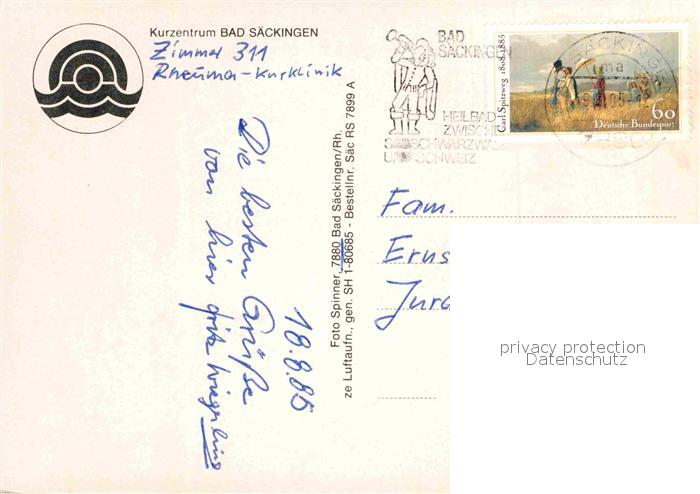 Kurzentrum BAD SÄCKINGEN
Zimmer 311
Rheuma-Kurklinik
Die besten Grüße
von hier
18.8.85
Foto Spinner, 7880 Bad Säckingen/Rh.
ze Luftaufn., gen. SH 1-80685 - Bestellnr. Säc RS 7899 A
BAD
SÄCKINGEN
HEILBAD
ZWISCHE
SCHWARZWA
UND SCHWEIZ
SÄCKINGEN
Carl Spitzweg 1808-1885
60
Deutsche Bundespost
Fam.
Erns
Jura
privacy protection
Datenschutz